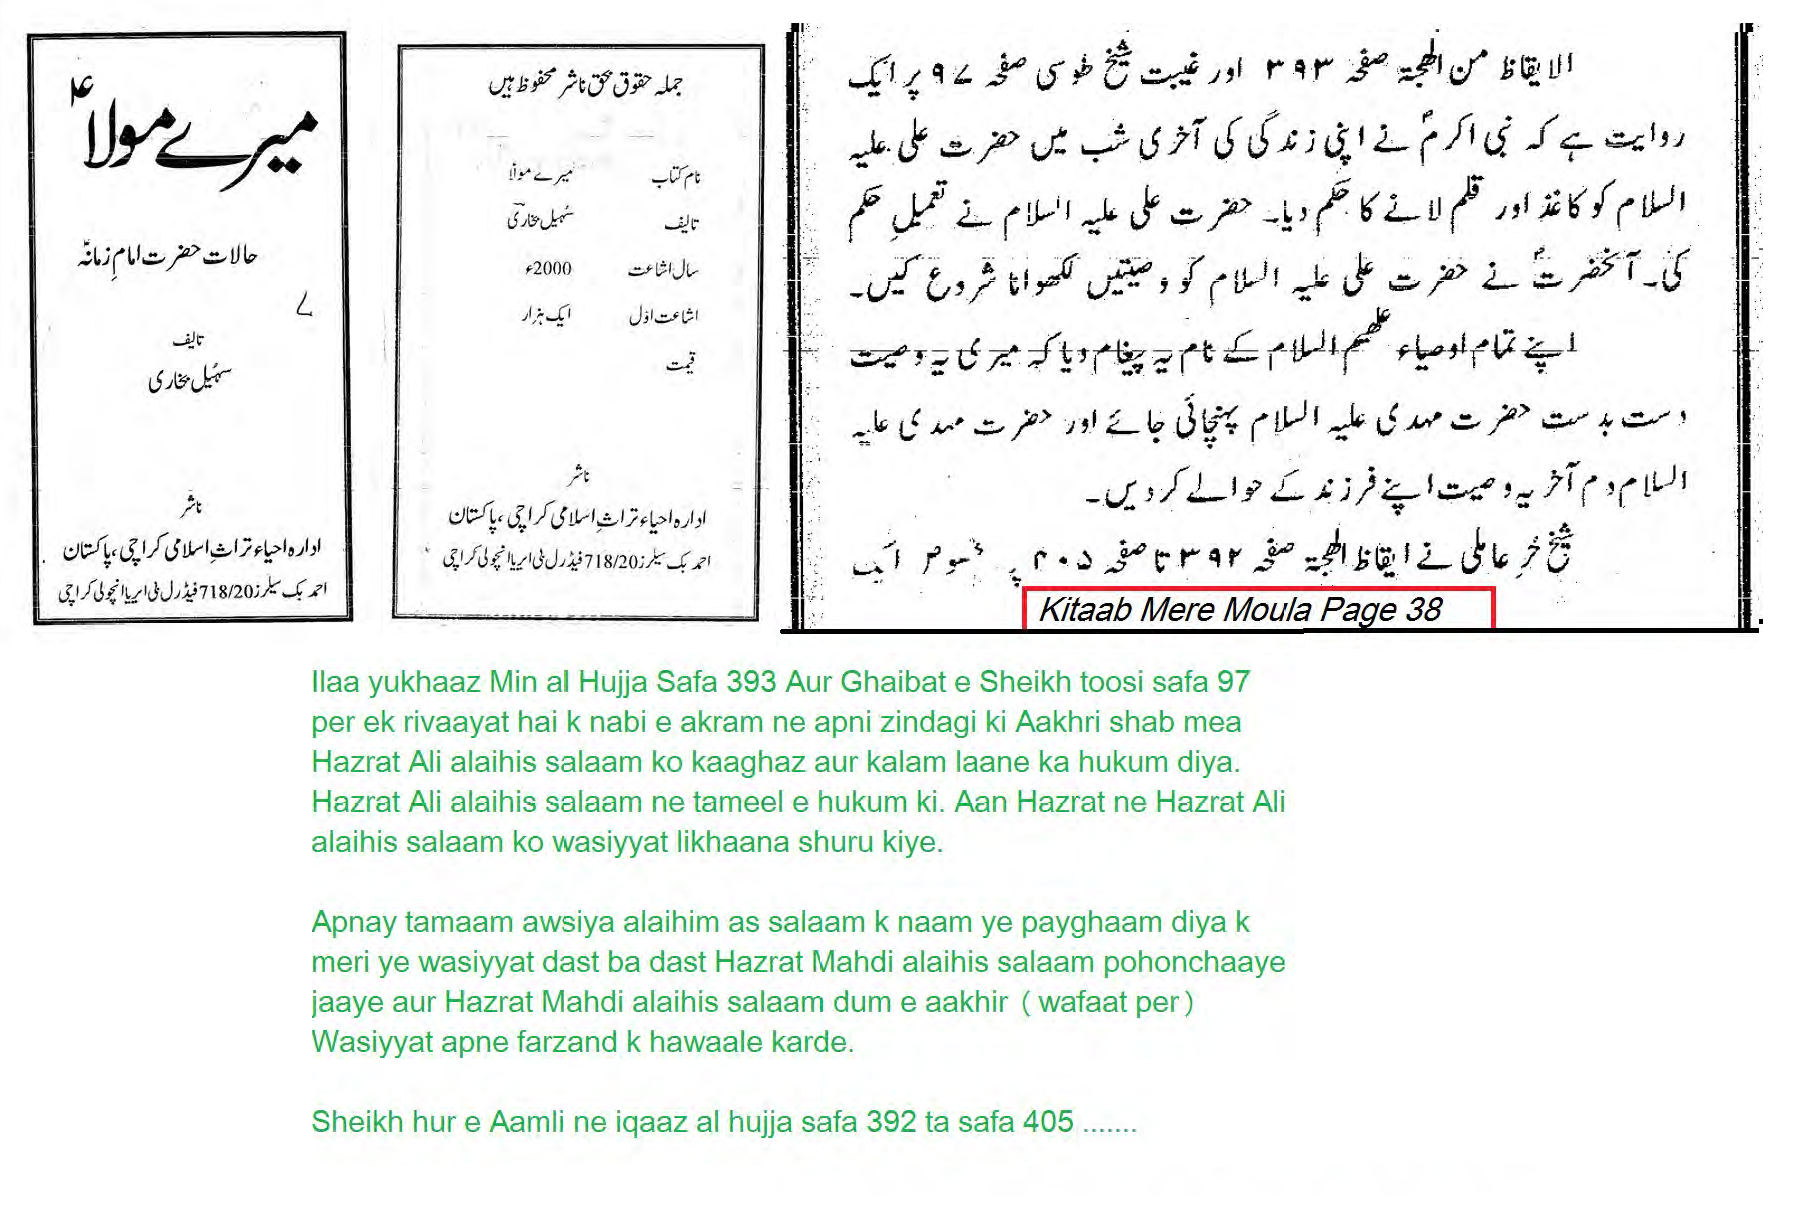 میرے مولاؑ
حالات حضرت امامِ زمانہؑ
تالیف
سہیل بخاری
ناشر
ادارہ احیاء تراثِ اسلامی کراچی، پاکستان
احمد بک سیلرز 718/20 فیڈرل بی ایریا انچولی کراچی
جملہ حقوق بحق ناشر محفوظ ہیں
نام کتاب میرے مولاؑ
تالیف سہیل بخاری
سال اشاعت 2000ء
اشاعت اوّل ایک ہزار
قیمت
ناشر
ادارہ احیاء تراثِ اسلامی کراچی، پاکستان
احمد بک سیلرز 718/20 فیڈرل بی ایریا انچولی کراچی
الایقاظ من الھجۃ صفحہ ۳۹۳ اور غیبت شیخ طوسی صفحہ ۹۷ پر ایک
روایت ہے کہ نبی اکرمؐ نے اپنی زندگی کی آخری شب میں حضرت علی علیہ
السلام کو کاغذ اور قلم لانے کا حکم دیا۔ حضرت علی علیہ السلام نے تعمیلِ حکم
کی۔ آنحضرتؐ نے حضرت علی علیہ السلام کو وصیتیں لکھوانا شروع کیں۔
اپنے تمام اوصیاء علھم السلام کے نام یہ پیغام دیا کہ میری یہ وصیت
دست بدست حضرت مہدی علیہ السلام پہنچائی جائے اور حضرت مہدی علیہ
السلام دم آخر یہ وصیت اپنے فرزند کے حوالے کردیں۔
شیخ حُرِ عاملی نے ایقاظ الھجۃ صفحہ ۳۹۲ تا صفحہ ۴۰۵ پر
Kitaab Mere Moula Page 38
Ilaa yukhaaz Min al Hujja Safa 393 Aur Ghaibat e Sheikh toosi safa 97
per ek rivaayat hai k nabi e akram ne apni zindagi ki Aakhri shab mea
Hazrat Ali alaihis salaam ko kaaghaz aur kalam laane ka hukum diya.
Hazrat Ali alaihis salaam ne tameel e hukum ki. Aan Hazrat ne Hazrat Ali
alaihis salaam ko wasiyyat likhaana shuru kiye.
Apnay tamaam awsiya alaihim as salaam k naam ye payghaam diya k
meri ye wasiyyat dast ba dast Hazrat Mahdi alaihis salaam pohonchaaye
jaaye aur Hazrat Mahdi alaihis salaam dum e aakhir ( wafaat per )
Wasiyyat apne farzand k hawaale karde.
Sheikh hur e Aamli ne iqaaz al hujja safa 392 ta safa 405 .......